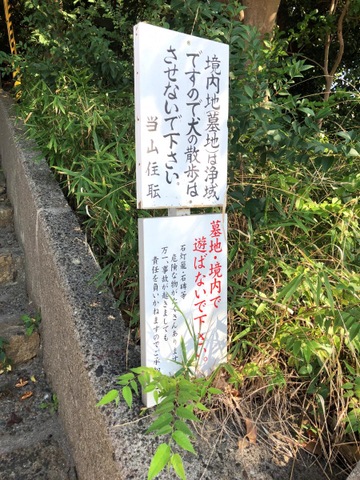 境内地(墓地)は浄域
ですので犬の散歩は
させないで下さい
当山住職
墓地・境内で
遊ばないで下さい
石灯籠・石碑等
危険な物がたくさんあります
万一、事故が起きましても
責任を負いかねますのでご了